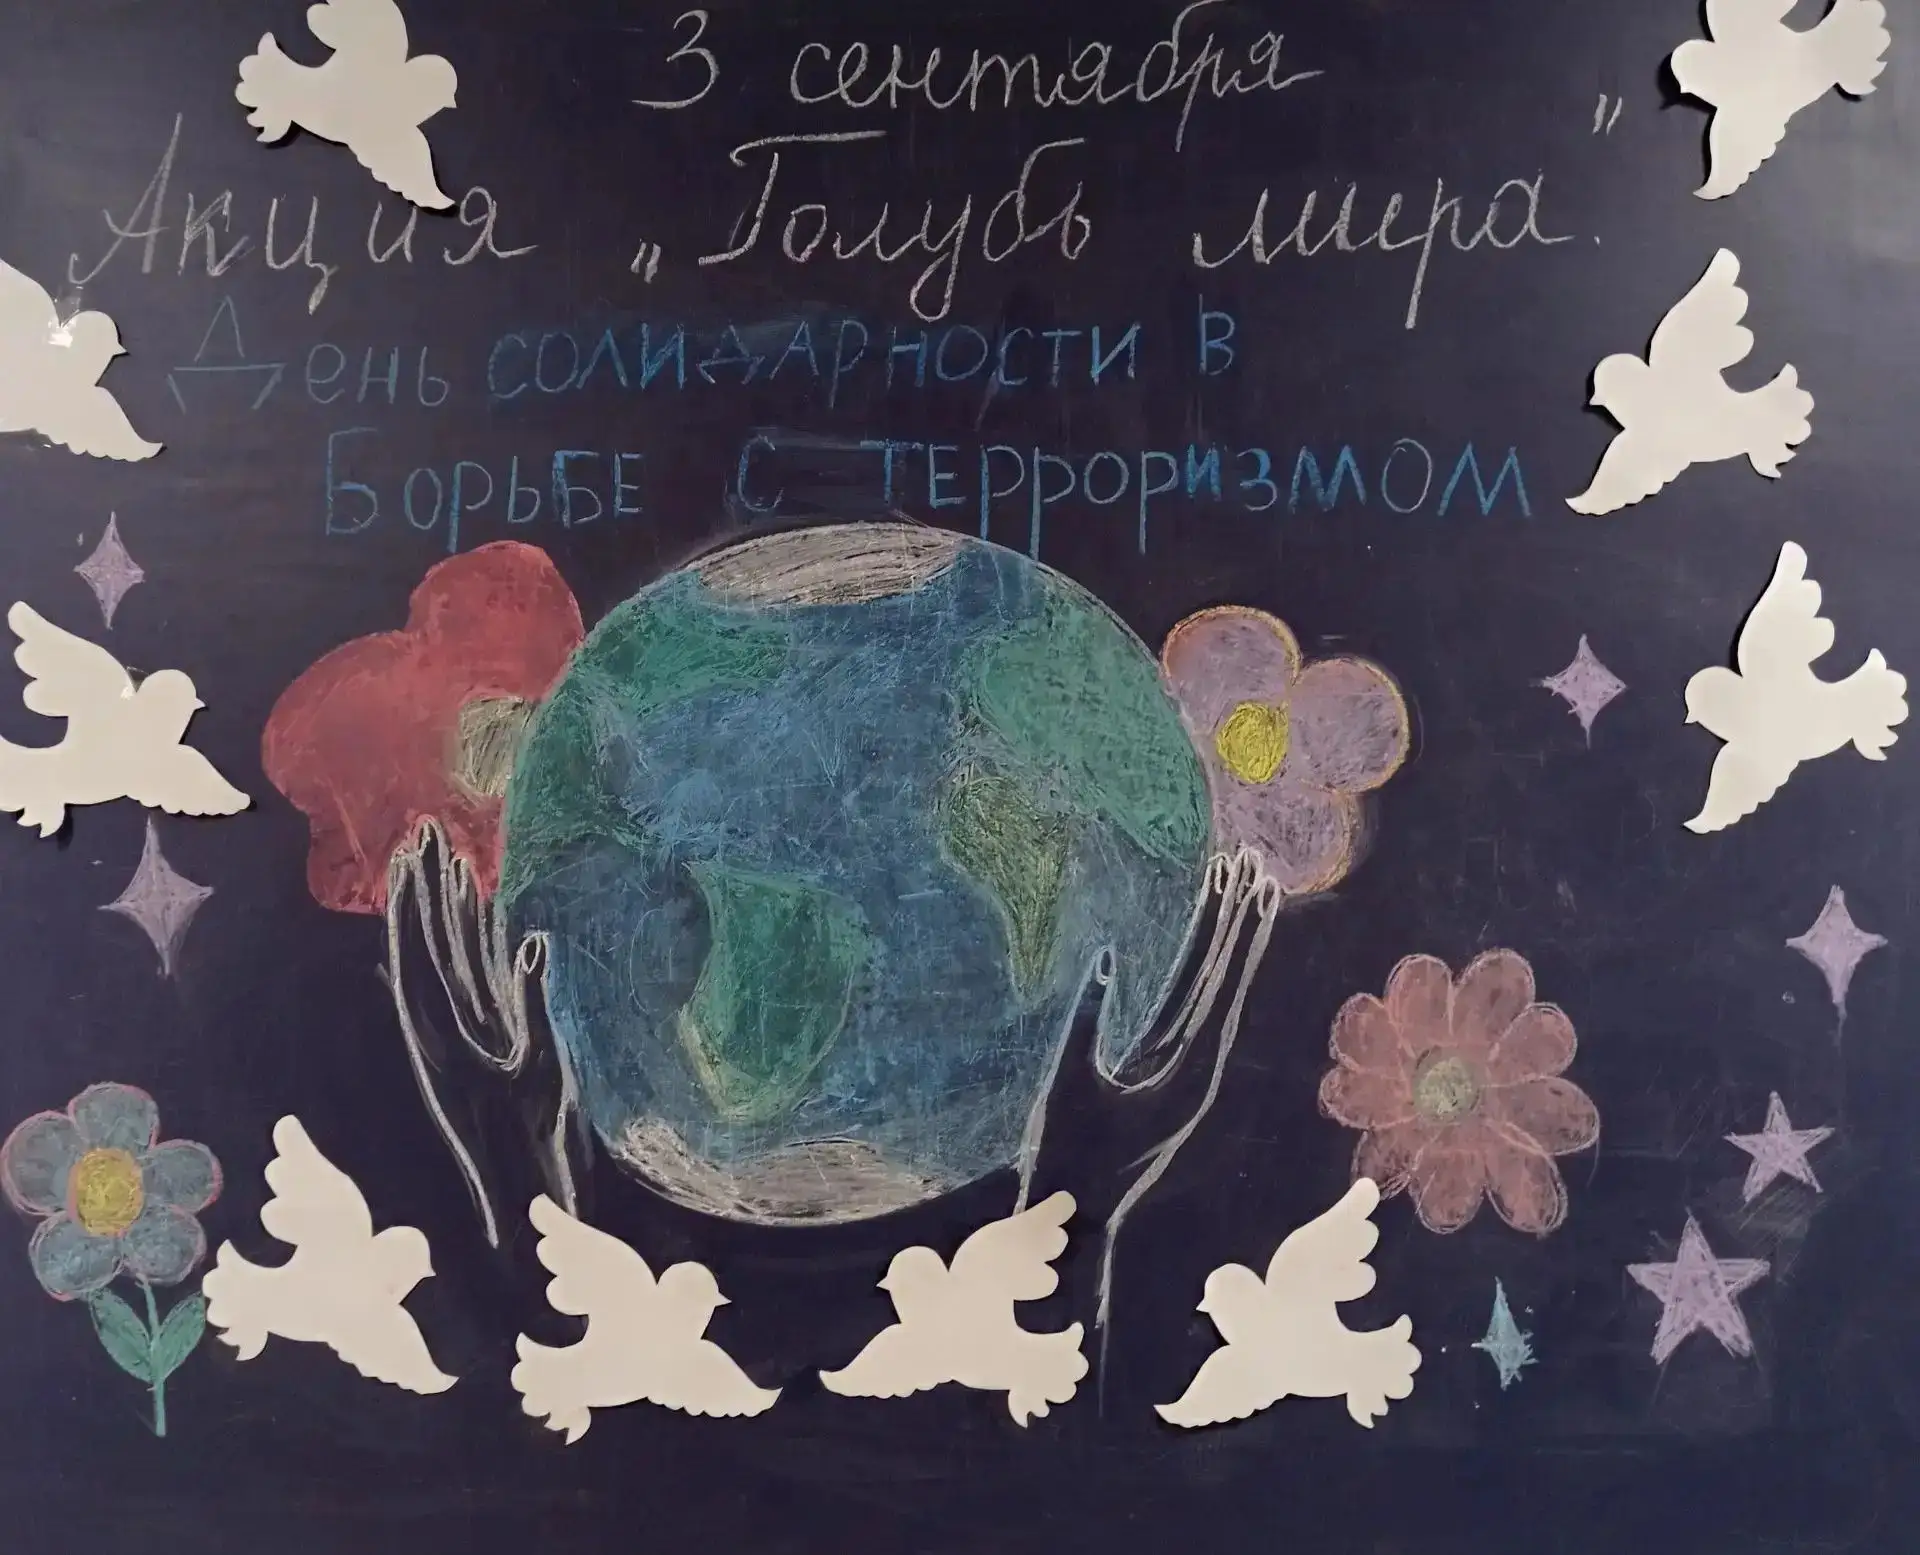 3 сентября
Акция „Голубь мира."
День солидарности в
Борьбе с терроризмом